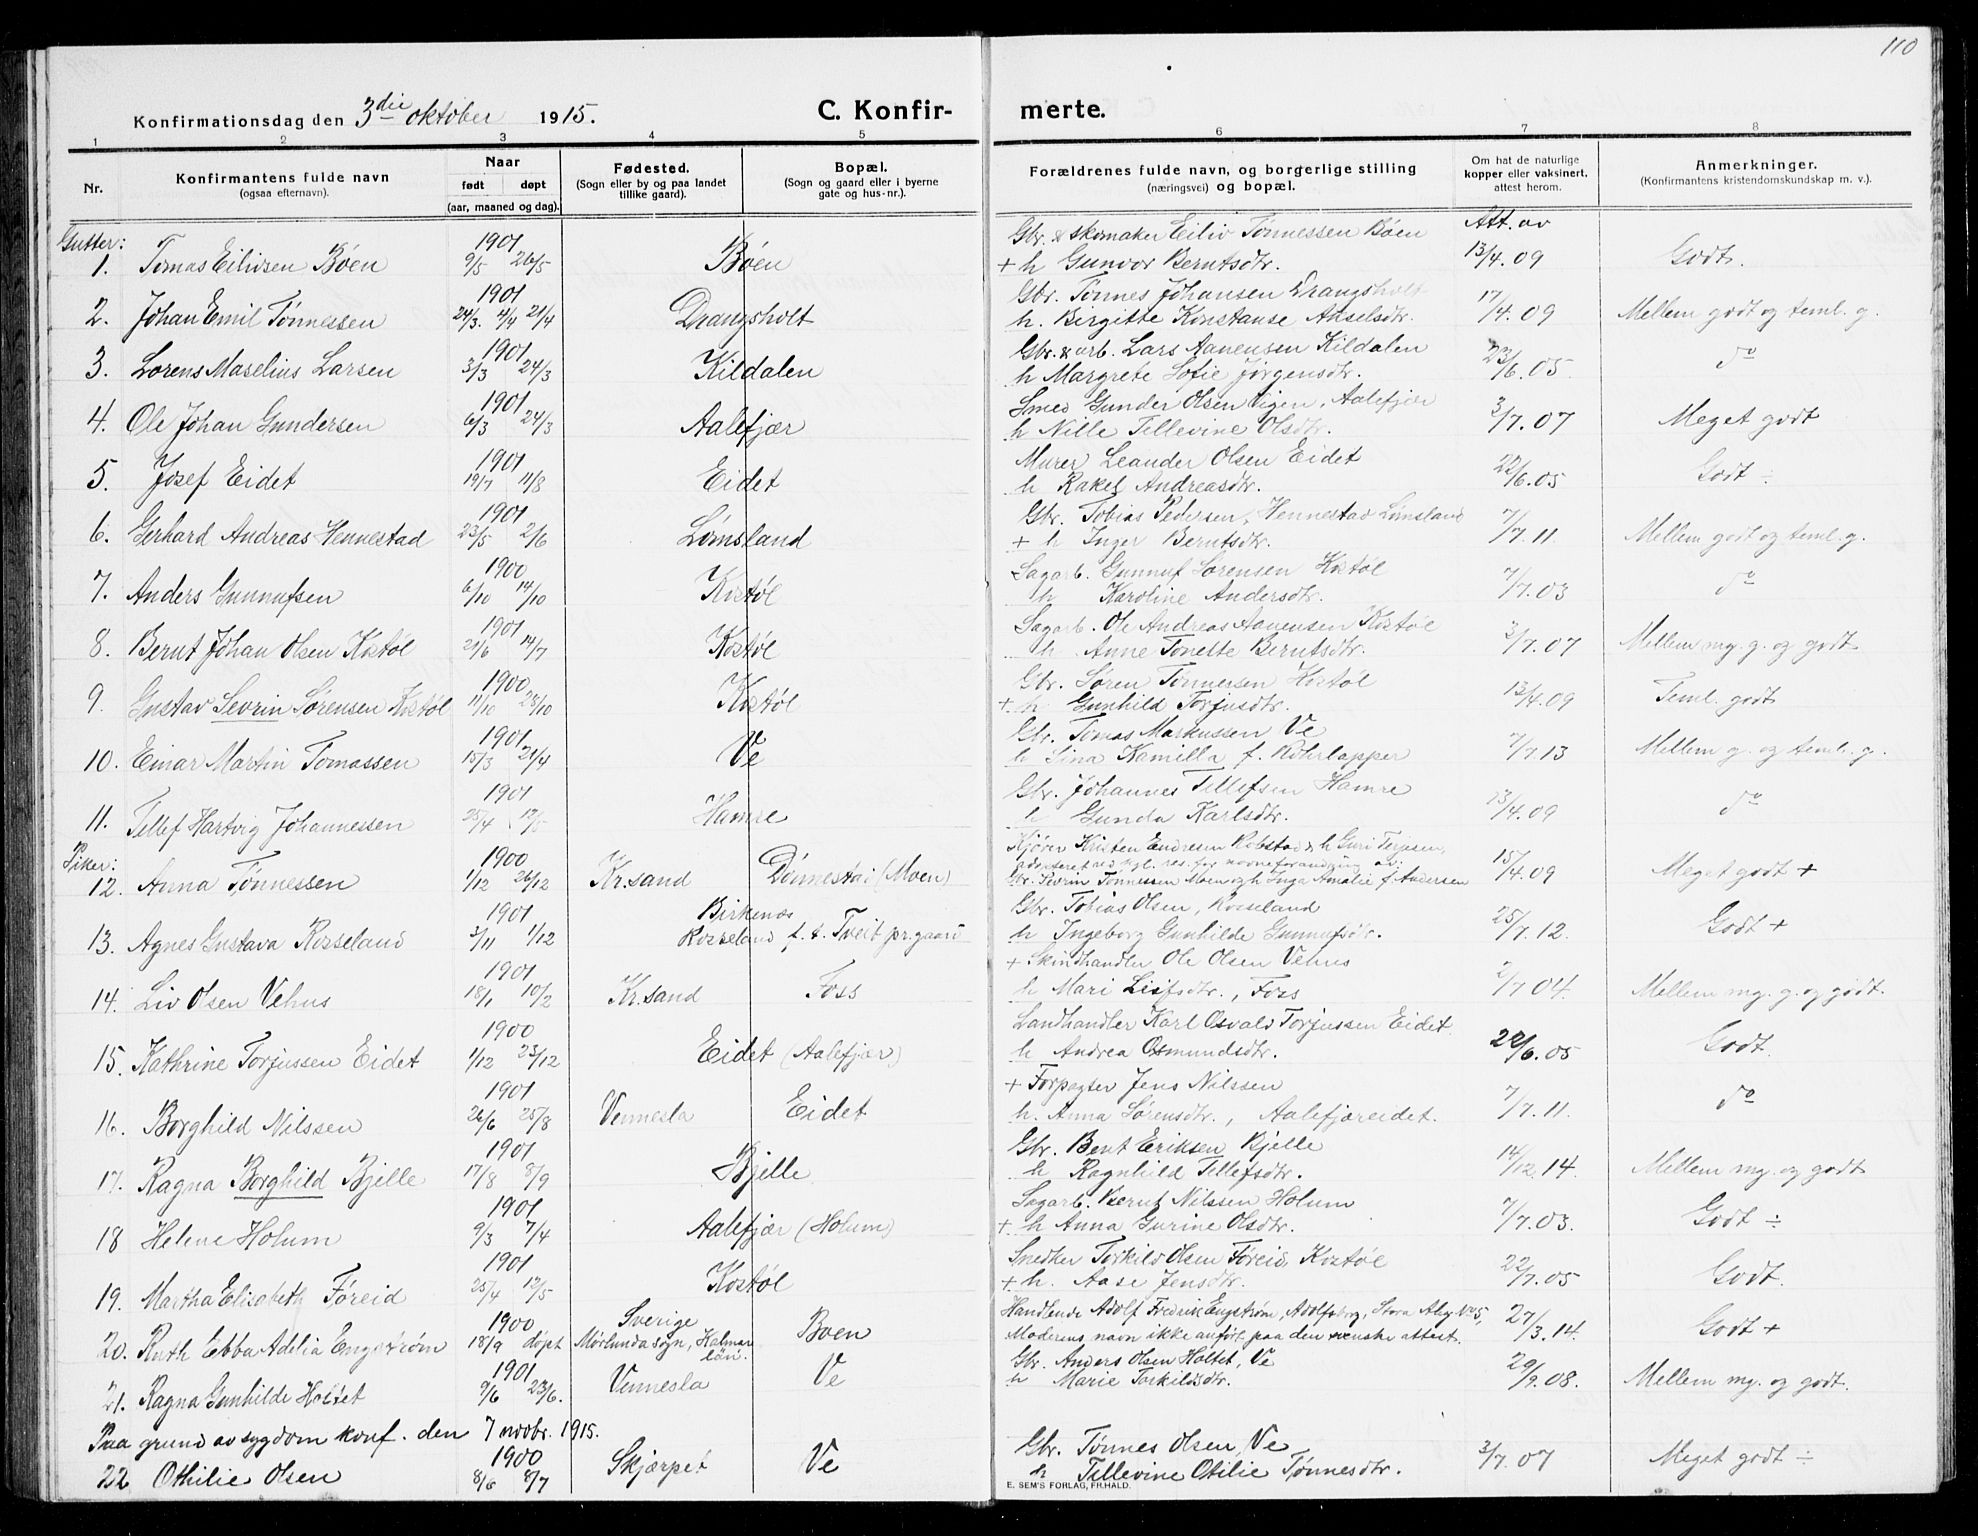 110
Konfirmationsdag den 3die oktober 1915.
C. Konfirmerte.
1 2 3 4 5 6 7 8
Nr.
Konfirmantens fulde navn
(ogsaa efternavn).
Naar
født døpt
(aar, maaned og dag).
Fødested.
(Sogn eller by og paa landet
tillike gaard).
Bopæl.
(Sogn og gaard eller i byerne
gate og hus-nr.).
Forældrenes fulde navn, og borgerlige stilling
(næringsvei) og bopæl.
Om hat de naturlige
kopper eller vaksinert,
attest herom.
Anmerkninger.
(Konfirmantens kristendomskundskap m. v.).
Gutter: 1901 Gbr. & skomaker Eiliv Tønnessen Bøen Att. av
1. Tomas Eilivsen Bøen 9/5 26/5 Bøen + h Gunvor Berntsdtr. 13/4.09 Godt.
1901 Gbr. Tønnes Johansen Drangsholt
2. Johan Emil Tønnessen 24/3. 4/4 21/4 Drangsholt h. Birgitte Konstanse Akselsdtr. 17/4.09 Mellem godt og teml. g.
1901 Gbr. & arb. Lars Aanensen Kildalen
3. Lorens Maselius Larsen 3/3 24/3 Kildalen h Margrete Sofie Jørgensdtr. 23/6.05 do
1901 Smed Gunder Olsen Vigen, Aalefjær
4. Ole Johan Gundersen 6/3 24/3 Aalefjær h Nille Tellevine Olsdtr. 3/7.07 Meget godt
1901 Murer Leander Olsen Eidet
5. Josef Eidet 19/7 11/8 Eidet h Rakel Andreasdtr. 22/6.05 Godt ÷
1901 Gbr. Tobias Pedersen, Hennestad Lømsland
6. Gerhard Andreas Hennestad 23/5 2/6 Lømsland + h Inger Berntsdtr. 7/7.11. Mellem godt og teml. g.
1900 Sagarb. Gunnuf Sørensen Kostøl
7. Anders Gunnufsen 6/10 14/10 Kostøl h Karoline Andersdtr. 7/7.03 do
1901 Sagarb. Ole Andreas Aanensen Kostøl
8. Bernt Johan Olsen Kostøl 21/6 14/7 Kostøl h Anne Tonette Berntsdtr. 3/7.07 Mellem mg. g. og godt
1900 Gbr. Søren Tønnersen Kostøl
9. Gustav Sevrin Sørensen Kostøl 11/10 28/10 Kostøl + h Gunhild Torjusdtr. 13/4.09 Teml. godt
1901 Gbr. Tomas Markussen Ve
10. Einar Martin Tomassen 15/3 21/4 Ve h Sina Kamilla f. Røhrlapper 7/7.13 Mellem g. og teml. g.
1901 Gbr. Johannes Tellefsen Hamre
11. Tellef Hartvig Johannessen 25/4 12/5 Hamre h Gunda Karlsdtr. 13/4.09 do
Kjører Kristen Endresen Robstad & h Guri Terjesen,
Piker: 1900 adopteret ved kgl. res. for navneforandring av:
12. Anna Tønnessen 1/12 26/12 Kr.sand Dønnestad (Moen) Gbr. Sevrin Tønnessen Moen og h Inga Amalie f Andersen 15/4.09 Meget godt +
1901 Birkenæs Gbr. Tobias Olsen, Rosseland
13. Agnes Gustava Rosseland 3/11 1/12 Rosseland f. t. Tveit pr.gaard h Ingeborg Gunhilde Gunnufsdtr. 25/7.12. Godt +
1901 + Skindhandler Ole Olsen Vehus
14. Liv Olsen Vehus 18/1 10/2 Kr.sand Foss h Mari Leifsdtr., Foss 2/7 04. Mellem mg. g. og godt.
1900 Landhandler Karl Osvald Torjussen Eidet
15. Kathrine Torjussen Eidet 1/12 23/12 Eidet (Aalefjær) h Andrea Osmundsdtr. 22/6.05 Godt.
1901 + Forpagter Jens Nilssen
16. Borghild Nilssen 26/6 25/8 Vennesla Eidet h. Anna Sørensdtr., Aalefjæreidet. 7/7.11. do
1901 Gbr. Bent Eriksen Bjelle
17. Ragna Borghild Bjelle 17/8 8/9 Bjelle h Ragnhild Tellefsdtr. 14/12.14. Mellem mg. og godt
1901 Sagarb. Bernt Nilssen Holum
18 Helene Holum 9/3 7/4 Aalefjær (Holum) + h Anna Gurine Olsdtr. 7/7.03. Godt ÷
1901 Snedker Torkild Olsen Føreid, Kostøl
19. Martha Elisabeth Føreid 25/4 12/5 Kostøl + h. Aase Jensdtr. 22/7.05 Godt.
1900 Sverige Handlende Adolf Fredrik Engstrøm, Adolfsberg, Stora Aby No 5,
20. Ruth Ebba Adelia Engstrøm 18/9 døpt Mørlunda sogn, Kalmar län. Boen Moderens navn ikke anført paa den svenske attest. 27/3.14. Godt +
1901 Gbr. Anders Olsen Holtet, Ve
21. Ragna Gunhilde Holtet 9/6 23/6. Vennesla Ve h Marie Torkildsdtr. 29/9.08. Mellem mg. og godt.
Paa grund av sygdom konf. den 7 novbr. 1915.
1900 Gbr. Tønnes Olsen, Ve
22 Othilie Olsen 8/6 8/7 Skjærpet Ve h Tellevine Otilie Tønnesdtr. 3/7.07 Meget godt ÷
E. SEM'S FORLAG, FR.HALD.